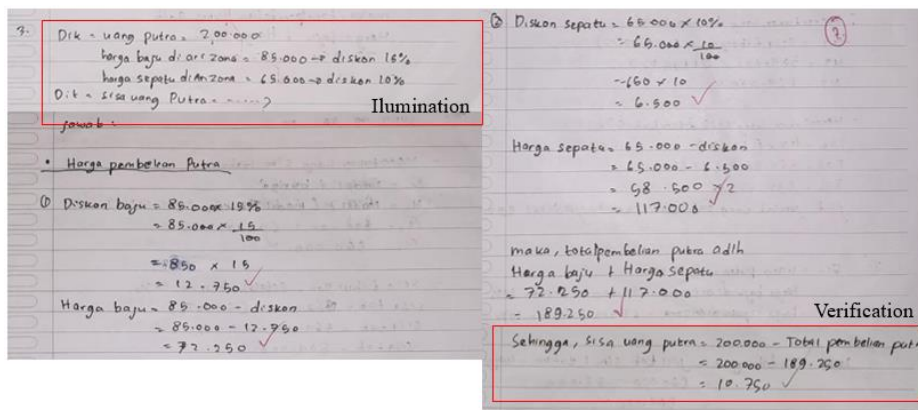 3.
Dik = uang putra = 200.000
harga baju di arizona = 85.000 → diskon 15%
harga sepatu di Arizona = 65.000 → diskon 10%
Dit = sisa uang Putra = ......?
Ilumination
jawab :
• Harga pembelian Putra
① Diskon baju = 85.000 x 15%
= 85.000 x 15/100
= 850 x 15
= 12.750
Harga baju = 85.000 - diskon
= 85.000 - 12.750
= 72.250
② Diskon sepatu = 65.000 x 10%
= 65.000 x 10/100
= 650 x 10
= 6.500
Harga sepatu = 65.000 - diskon
= 65.000 - 6.500
= 58.500 x 2
= 117.000
maka, total pembelian putra adlh
Harga baju + Harga sepatu
= 72.250 + 117.000
= 189.250
Verification
Sehingga, sisa uang putra = 200.000 - Total pembelian put
= 200.000 - 189.250
= 10.750